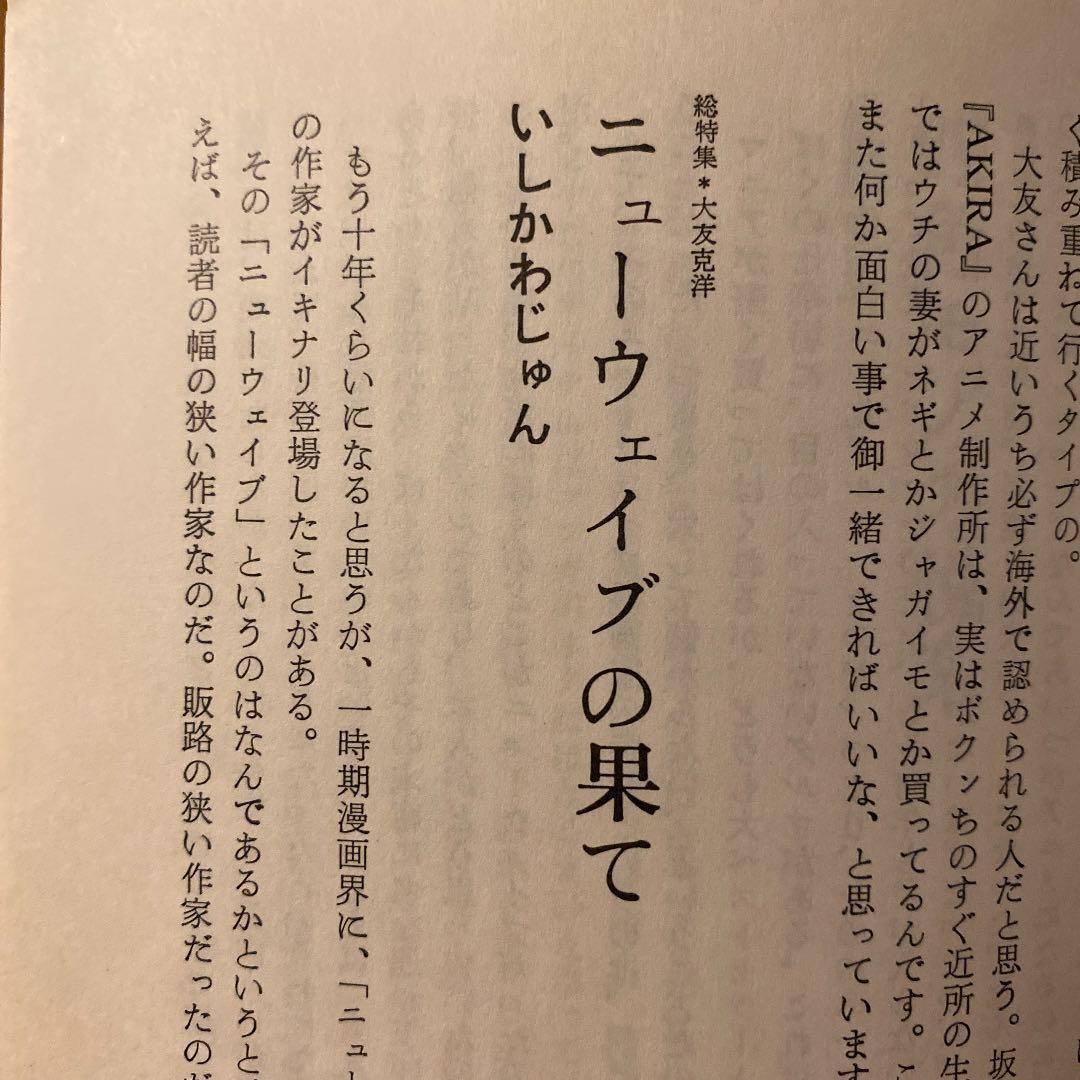 く積み重ねて行くタイプの。
大友さんは近いうち必ず海外で認められる人だと思う。坂
『AKIRA』のアニメ制作所は、実はボクンちのすぐ近所の生
ではウチの妻がネギとかジャガイモとか買ってるんです。こ
また何か面白い事で御一緒できればいいな、と思っています
総特集*大友克洋
ニューウェイブの果て
いしかわじゅん
もう十年くらいになると思うが、一時期漫画界に、「ニュー
の作家がイキナリ登場したことがある。
その「ニューウェイブ」というのはなんであるかというと
えば、読者の幅の狭い作家なのだ。販路の狭い作家だったのだ